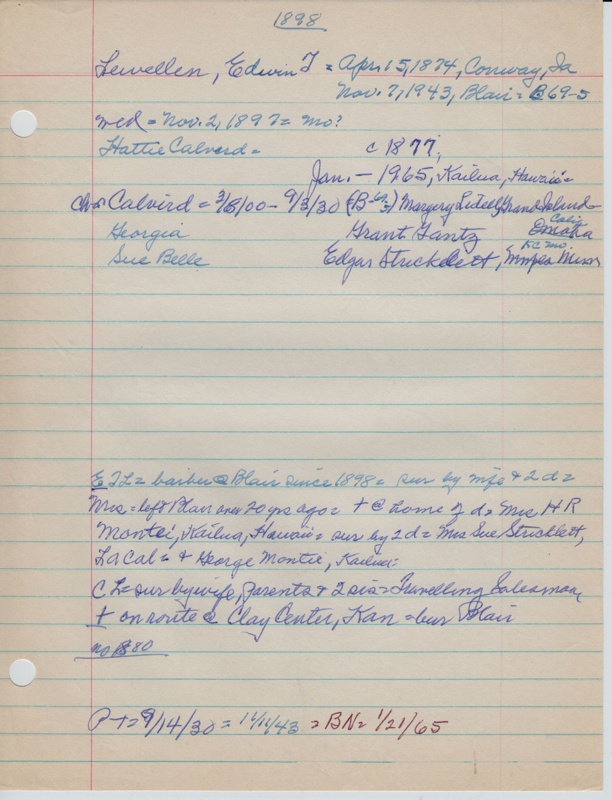 1898
Lewellen, Edwin T = Apr. 15, 1874, Conway, Ia
Nov. 7, 1943, Blair = B69-5
wed = Nov. 2, 1897 = Mo?
Hattie Calverd = c 1877,
Jan. - 1965, Kailua, Hawaii =
Ch = Calvird = 3/8/00 - 9/3/30 (B-69-3) Margery Lutell, Grand Island =
Georgia Grant Gantz Calif Omaha
Sue Belle Edgar Strickelett, KC Mo. Minn
ETL = barber @ Blair since 1898 = sur by wife & 2 d =
Mrs = left Blair over 20 yrs ago = + @ home of d = Mrs H R
Monte, Kailua, Hawaii = sur by 2 d = Mrs Sue Stricklett,
La Cal = & George Monte, Kailua:
C L = sur by wife, parents & 2 sis = Travelling Salesman,
+ on route @ Clay Center, Kan = bur Blair
no B80
P T = 9/14/30 = 11/11/43 = BN = 1/21/65